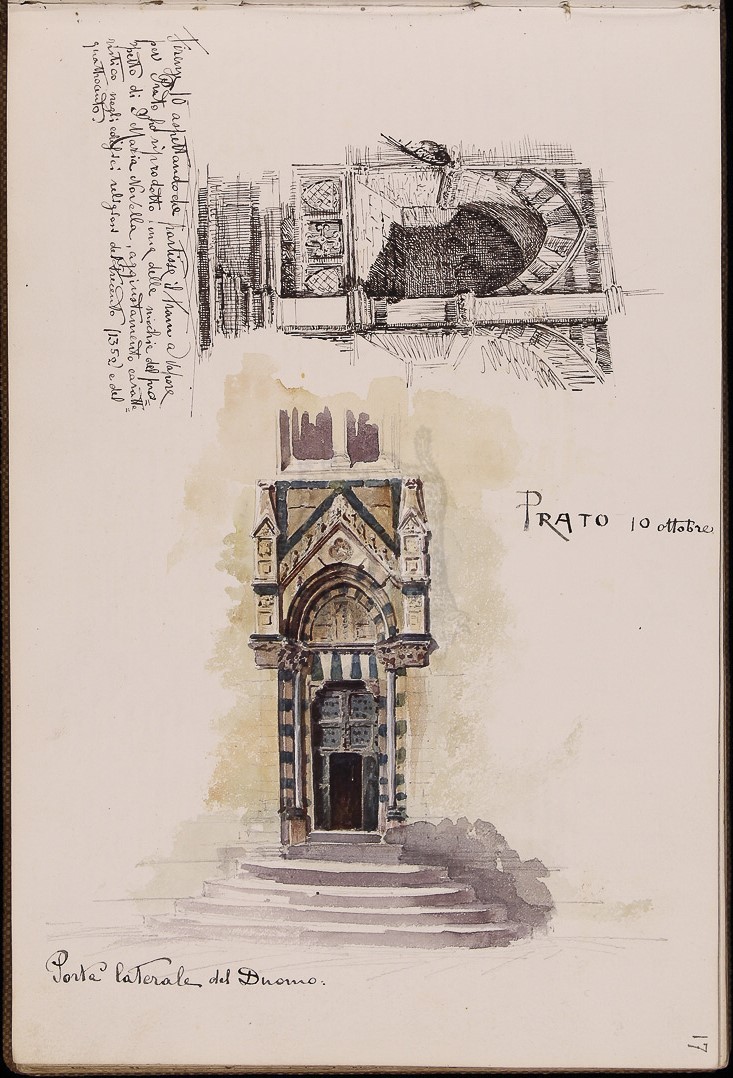 Firenze 10 aspettando che partisse il Tram a vapore
per Prato ho riprodotto una delle nicchie del pro=
spetto di S Maria Novella, aggiustamento caratte=
ristico negli edifici religiosi del trecento (1352) e del
quattrocento)
PRATO 10 ottobre
Porta laterale del Duomo.
17